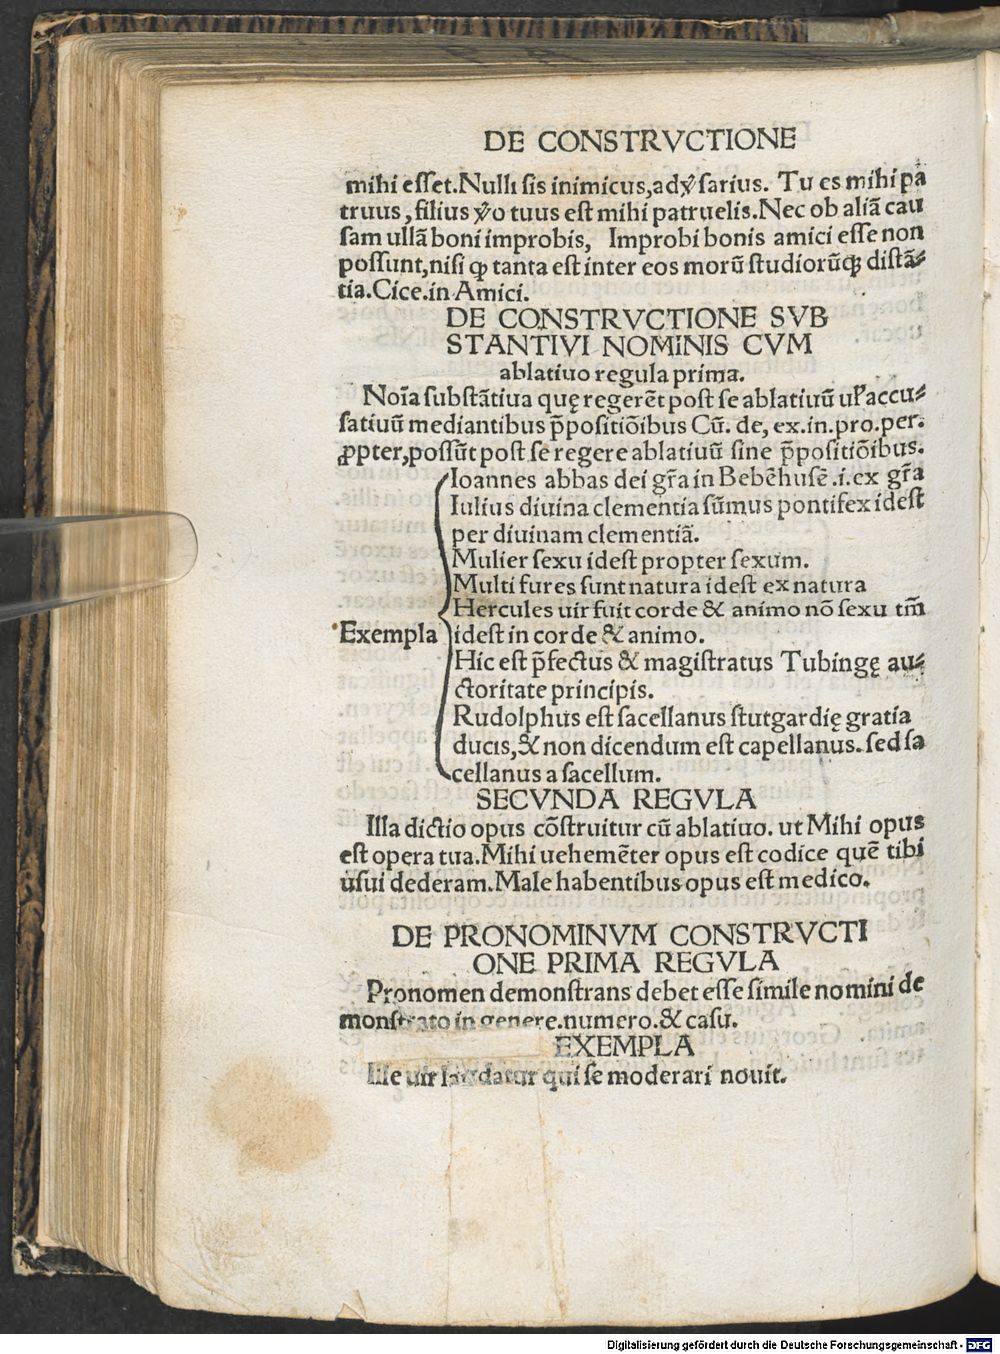 DE CONSTRVCTIONE
mihi esset.Nulli sis inimicus,adꝟsarius. Tu es mihi pa
truus,filius ꝟo tuus est mihi patruelis.Nec ob aliā cau
sam ullā boni improbis, Improbi bonis amici esse non
possunt,nisi ꝙ tanta est inter eos morū studiorūꝗ distā⸗
tia.Cice.in Amici.
DE CONSTRVCTIONE SVB
STANTIVI NOMINIS CVM
ablatiuo regula prima.
Noīa substātiua quę regerēt post se ablatiuū uꝉ accu⸗
satiuū mediantibus p̄positiōibus Cū. de, ex.in.pro.per.
ꝓpter,possūt post se regere ablatiuū sine p̄positiōibus.
Ioannes abbas dei gr̄a in Bebēhusē .i.ex gr̄a
Iulius diuina clementia sūmus pontifex idest
per diuinam clementiā.
Mulier sexu idest propter sexum.
Multi fures sunt natura idest ex natura
Hercules uir fuit corde & animo nō sexu tm̄
Exempla idest in corde & animo.
Hic est p̄fectus & magistratus Tubingę au⸗
ctoritate principis.
Rudolphus est sacellanus stutgardię gratia
ducis,& non dicendum est capellanus.sed sa
cellanus a sacellum.
SECVNDA REGVLA
Illa dictio opus cōstruitur cū ablatiuo. ut Mihi opus
est opera tua.Mihi uehemēter opus est codice quē tibi
usui dederam.Male habentibus opus est medico.
DE PRONOMINVM CONSTRVCTI
ONE PRIMA REGVLA
Pronomen demonstrans debet esse simile nomini de
monstrato in genere.numero.& casu.
EXEMPLA
Ille uir laudatur qui se moderari nouit.
Digitalisierung gefördert durch die Deutsche Forschungsgemeinschaft - DFG